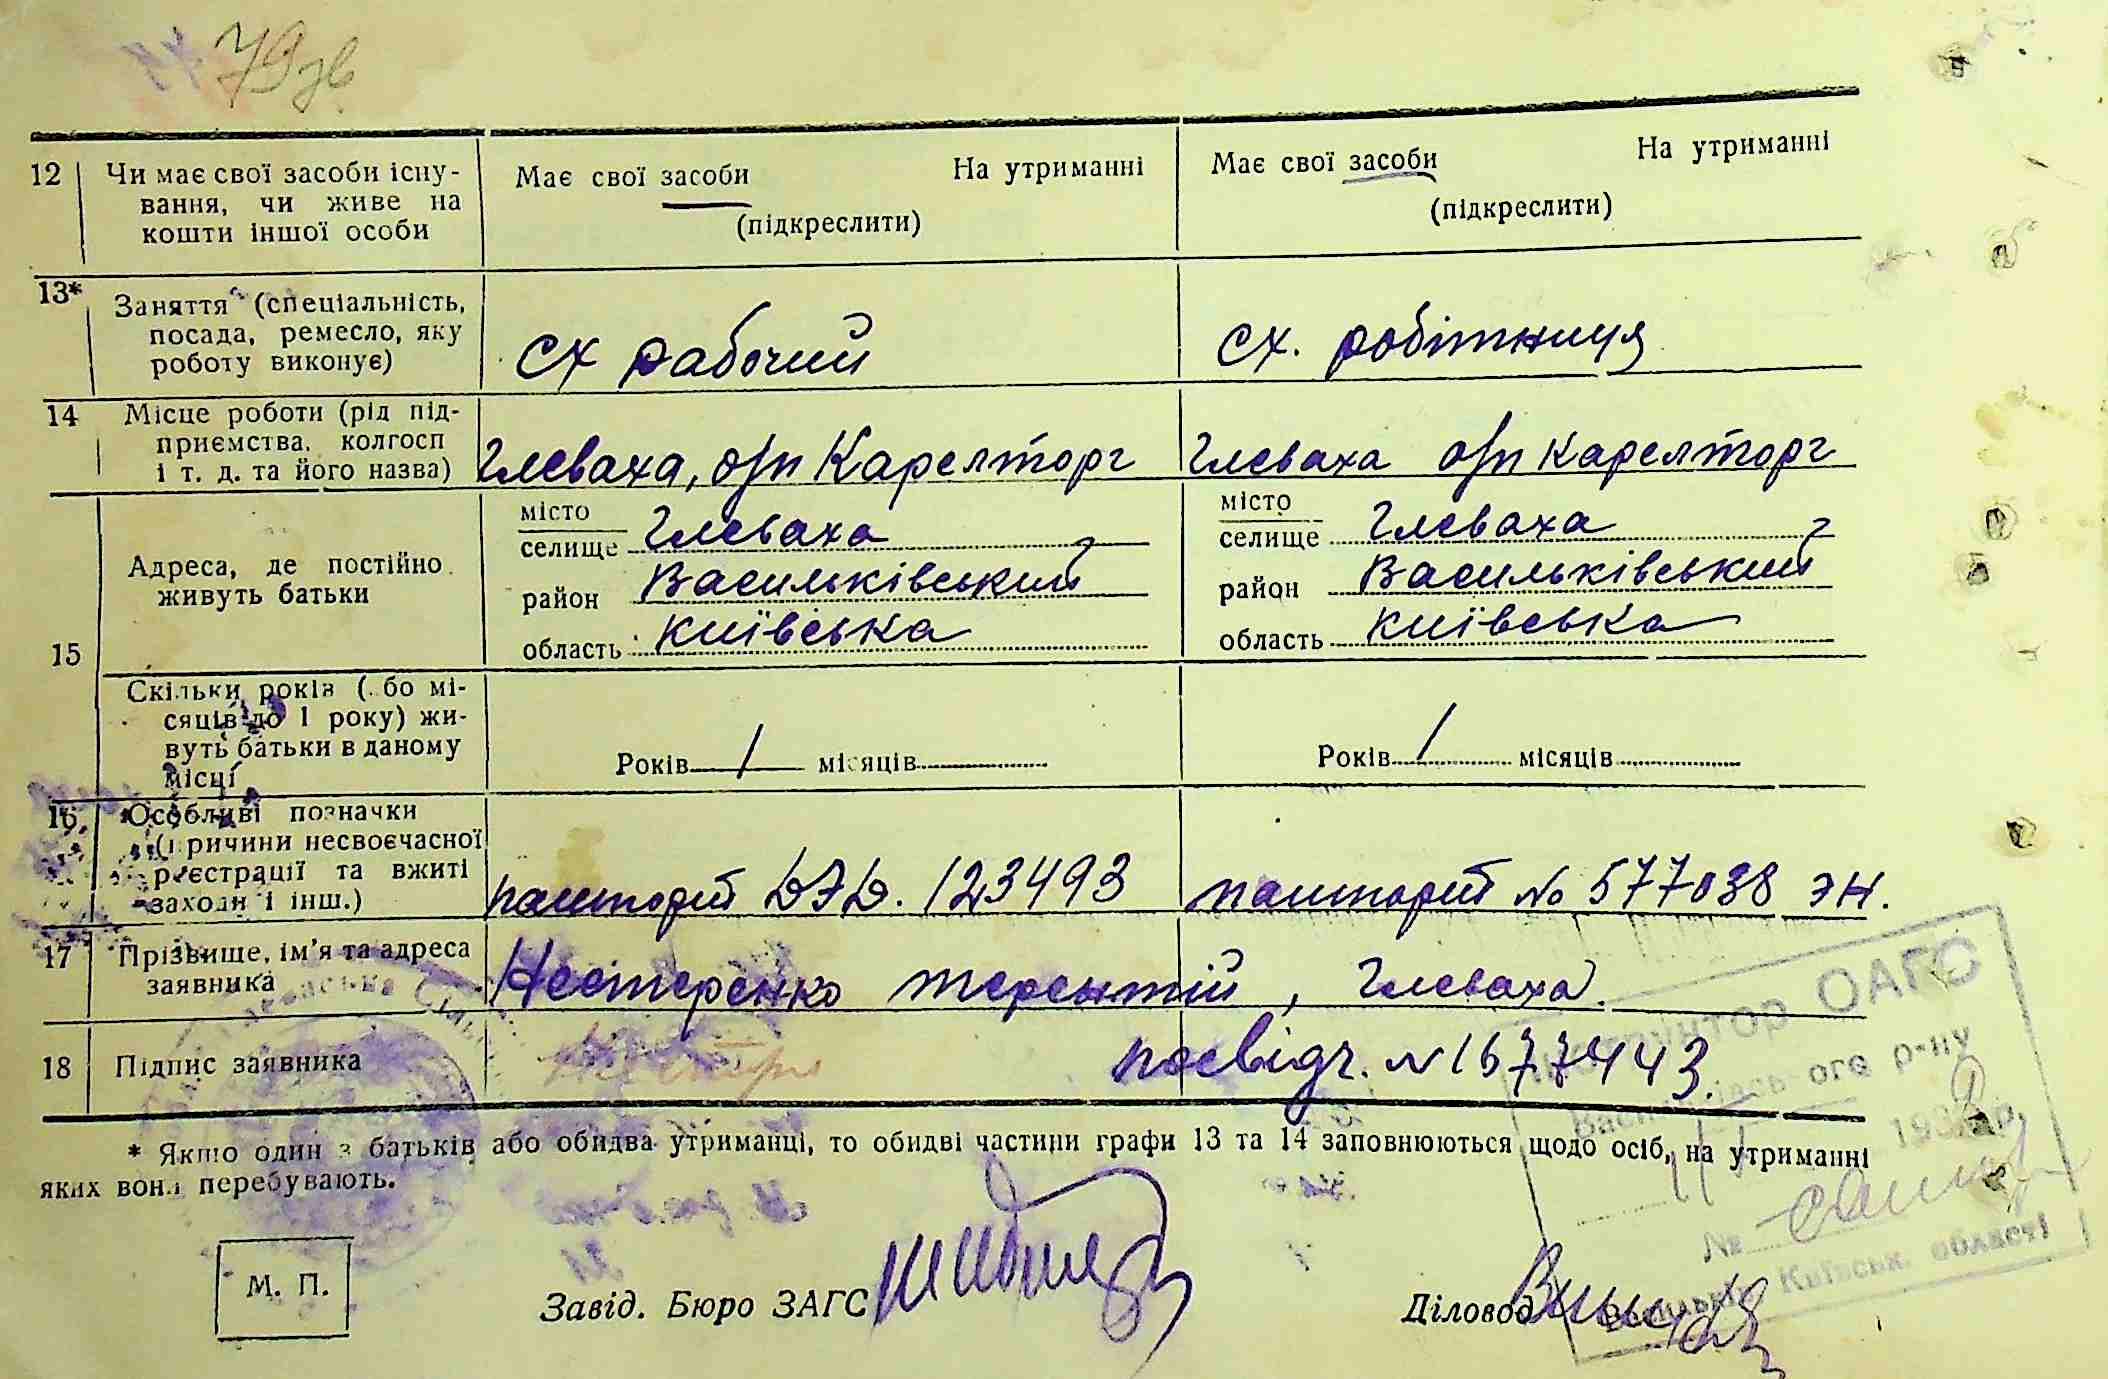 79 зв
12 Чи має свої засоби існу- Має свої засоби На утриманні Має свої засоби На утриманні
вання, чи живе на (підкреслити) (підкреслити)
кошти іншої особи
13* Заняття (спеціальність,
посада, ремесло, яку сх рабочий сх. робітниця
роботу виконує)
14 Місце роботи (рід під-
приємства, колгосп
і т. д. та його назва) Глеваха, о/п Карелторг Глеваха о/п Карелторг
15 Адреса, де постійно
живуть батьки
місто
селище Глеваха
район Васильківський
область Київська
місто
селище Глеваха
район Васильківський
область Київська
Скільки років (або мі-
сяців до 1 року) жи-
вуть батьки в даному
місці
Років 1 місяців Років 1 місяців
16 Особливі позначки
(причини несвоєчасної
реєстрації та вжиті
заходи і інш.)
пашпорт 123493 пашпорт № 577038 ЭН.
17 Прізвище, ім'я та адреса
заявника Нестеренко Терентій, Глеваха.
18 Підпис заявника посвідч. № 1677443.
* Якщо один з батьків або обидва утриманці, то обидві частини графи 13 та 14 заповнюються щодо осіб, на утриманні
яких вони перебувають.
М. П.
Завід. Бюро ЗАГС
Діловод
Інструктор ОАГС
р-ну
№
Київськ. області